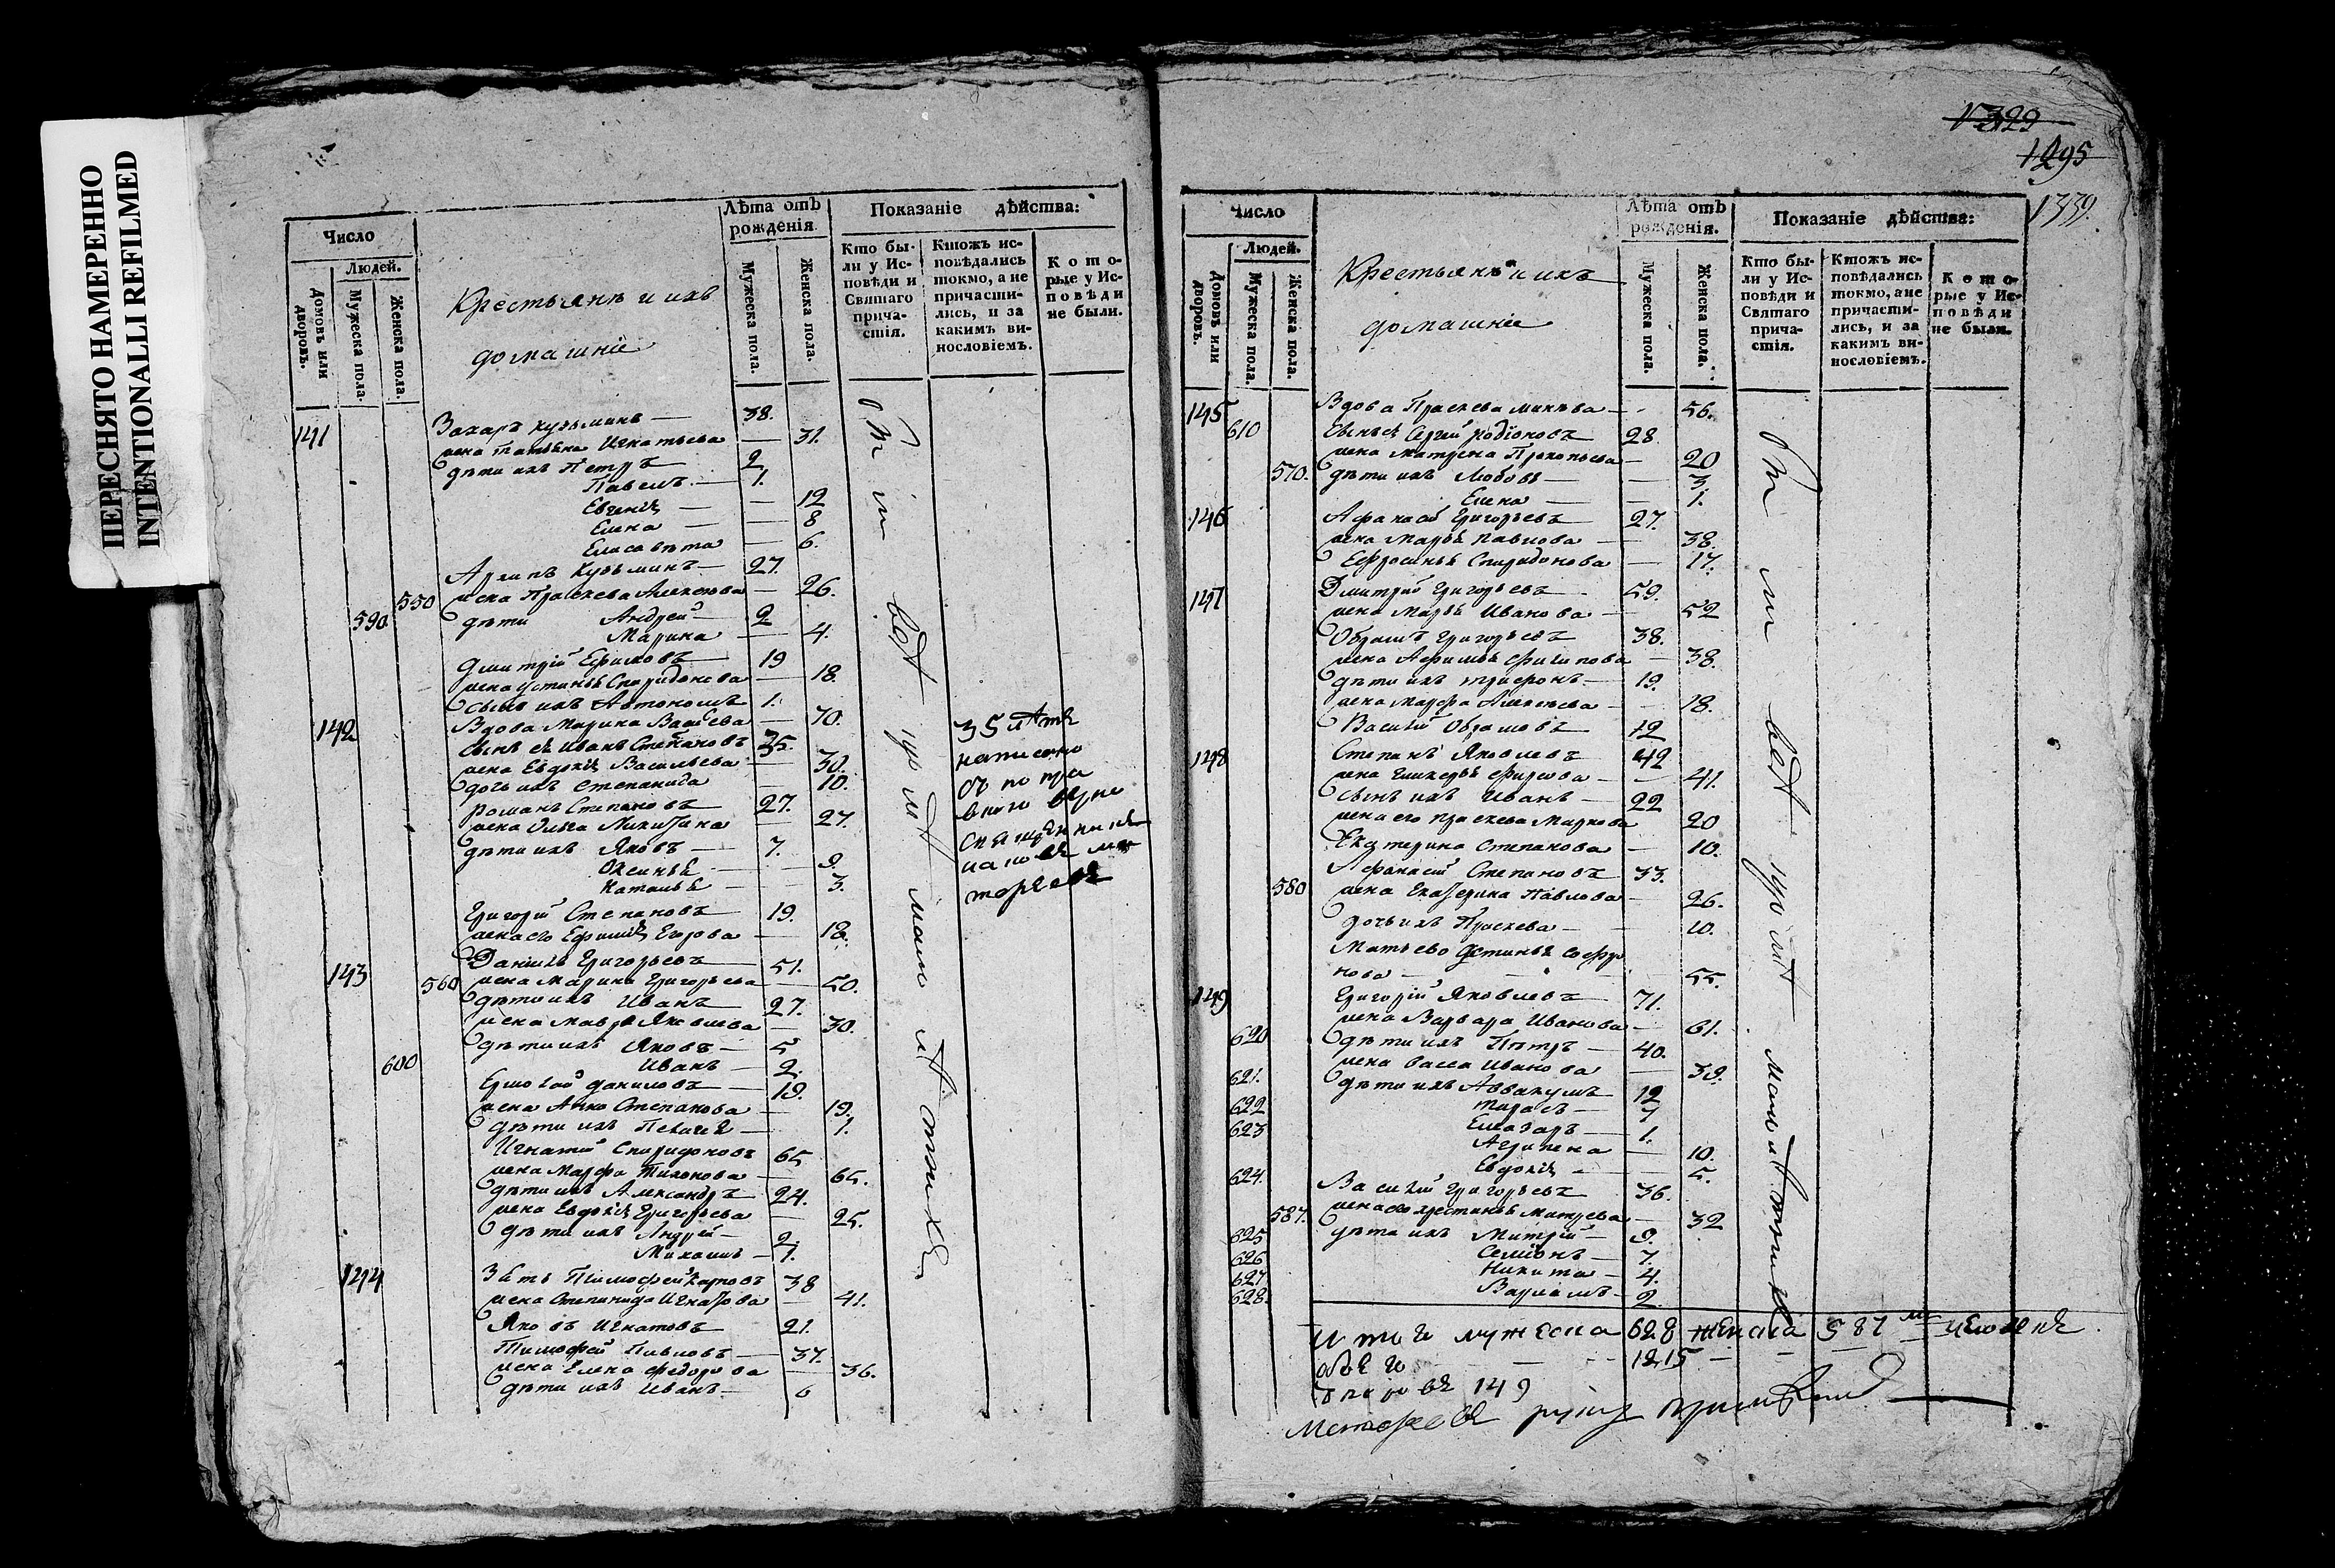 ПЕРЕСНЯТО НАМЕРЕННО
INTENTIONALLI REFILMED
Число
Людей.
Домовъ или дворовъ.
Мужеска пола.
Женска пола.
Крестьянъ и ихъ
домашніе
Лѣта отъ рожденія
Мужеска пола.
Женска пола.
Показаніе дѣйства:
Кто бы-
ли у Ис-
повѣди и
Святаго
прича-
стія.
Ктожъ ис-
повѣдались
токмо, а не
причасти-
лись, и за
какимъ ви-
нословіемъ.
Кото-
рые у Ис-
повѣди
не были.
141 Захаръ Кузьминъ — 38.
жена Татьяна Игнатьева — 31.
дѣти ихъ Петръ 2
Павелъ — 1.
Евгенія — 12
Елена — 8
Елисавѣта — 6.
Архипъ Кузьминъ — 27.
550 жена Праскева Алексѣева — 26.
590 дѣти Андрей — 2
Марина — 4.
Дмитрій Ефимовъ 19
жена Устинья Спиридонова — 18.
сынъ ихъ Автономъ 1.
142 Вдова Марина — 70.
сынъ ея Иванъ Степановъ 35.
жена Евдокія Васильева — 30.
дочь ихъ Степанида — 10.
Романъ Степановъ 27.
жена Ольга Никитина — 27.
дѣти ихъ Яковъ — 7.
Оксинья — 9.
Наталья — 3.
Григорій Степановъ 19.
жена его Ефимія Егорова — 18.
35 лѣтъ
написано
143 Данилъ Григорьевъ 51.
560 жена Марина Григорьева — 50.
дѣти ихъ Иванъ 27.
жена Мавра Яковлева — 30.
дѣти ихъ Яковъ — 5
600 Иванъ — 2.
Ермолай Даниловъ — 19.
жена Анна Степанова — 19.
дѣти ихъ Пелагея — 1.
Игнатій Спиридоновъ 65
жена Марфа Тихонова — 65.
дѣти ихъ Александръ 24.
жена Евдокія Григорьева — 25.
дѣти ихъ Андрей — 2.
Михаилъ — 1.
144 Зять Тимофей Карповъ 38
жена Степанида Игнатова — 41.
Яковъ Игнатовъ 21.
Тимофей Павловъ — 37.
жена Елена Федорова — 36.
дѣти ихъ Иванъ — 6
1329
1295
1339.
Число
Людей.
Домовъ или дворовъ.
Мужеска пола.
Женска пола.
Крестьянъ и ихъ
домашніе
Лѣта отъ рожденія.
Мужеска пола.
Женска пола.
Показаніе дѣйства:
Кто бы-
ли у Ис-
повѣди и
Святаго
прича-
стія.
Ктожъ ис-
повѣдались
токмо, а не
причасти-
лись, и за
какимъ ви-
нословіемъ.
Кото-
рые у Ис-
повѣди
не были.
145 Вдова Праскева — 56.
610 сынъ ея Сергей Родіоновъ 28.
жена Матрена Прокопьева — 20
570. дѣти ихъ Любовь — 3.
Елена — 1.
146 Афанасій Григорьевъ 27.
жена Марья Павлова — 38.
Ефросинья Спиридонова — 17.
147 Дмитрій Григорьевъ 59.
жена Марья Иванова — 52
Обрамъ Григорьевъ 38.
жена Афимья Филипова — 38.
дѣти ихъ Трифонъ — 19.
жена Марфа Алексѣева — 18.
Василій Обрамовъ 12
148 Степанъ Яковлевъ 42
жена Гликерья — 41.
сынъ ихъ Иванъ — 22
жена его Праскева Маркова 20
Екатерина Степанова — 10.
Афанасій Степановъ 33.
580 жена Екатерина Павлова — 26.
дочь ихъ Праскева — 10.
Матьево Устинья Софро
нова — 55.
149 Григорій Яковлевъ 71.
жена Варвара Иванова — 61.
620 дѣти ихъ Петръ — 40.
жена Васса Иванова — 39.
621. дѣти ихъ Аввакумъ 12
622 Тарасъ — 7
623 Елеазаръ — 1.
Агрипена — 10.
Евдокія — 5.
624. Василій Григорьевъ 36.
587. жена его Хрестинья Матвева — 32
625 дѣти ихъ Митрій — 9.
626 Семіонъ — 7.
627 Никита — 4.
628. Варламъ — 2.
Итого мужеска 628 женска 587
1215
149